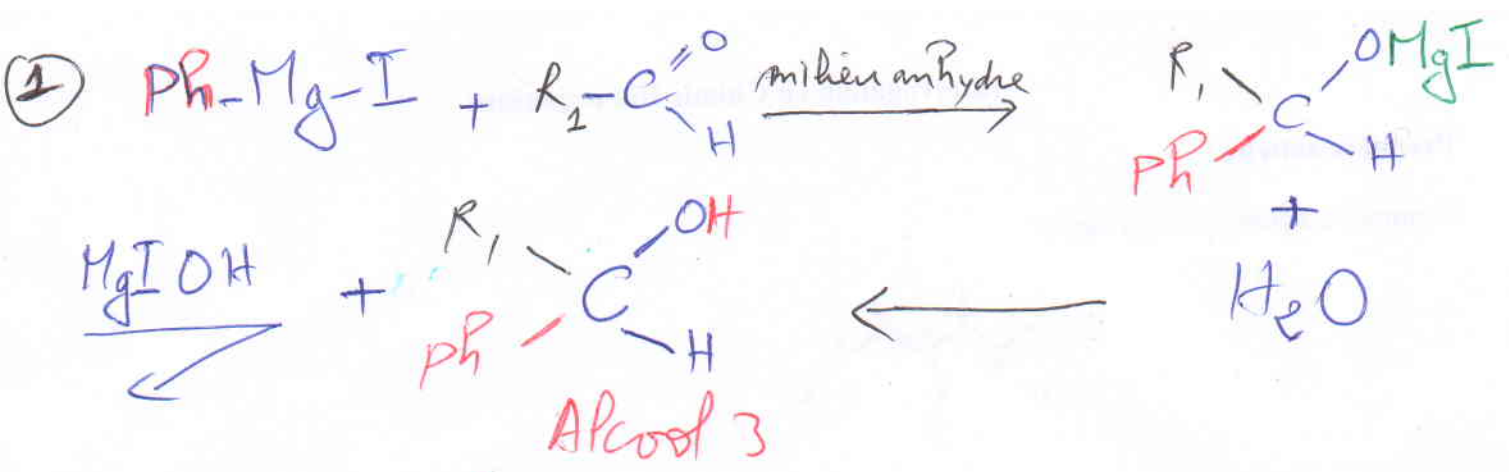 1 Ph-Mg-I + R1-C O H milieu anhydre R1 Ph C OMgI H
+
H2O
MgIOH + R1 Ph C OH H
Alcool 3